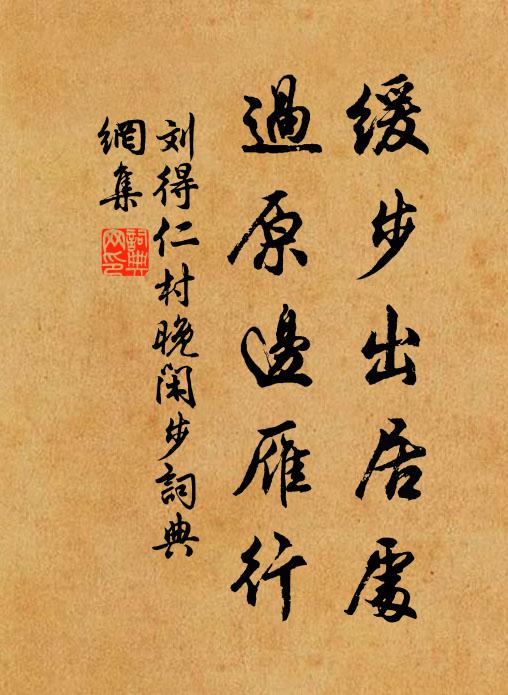 緩步出居處
過原邊雁行
刘得仁村晚閑步詞典
網集
詞典
网印